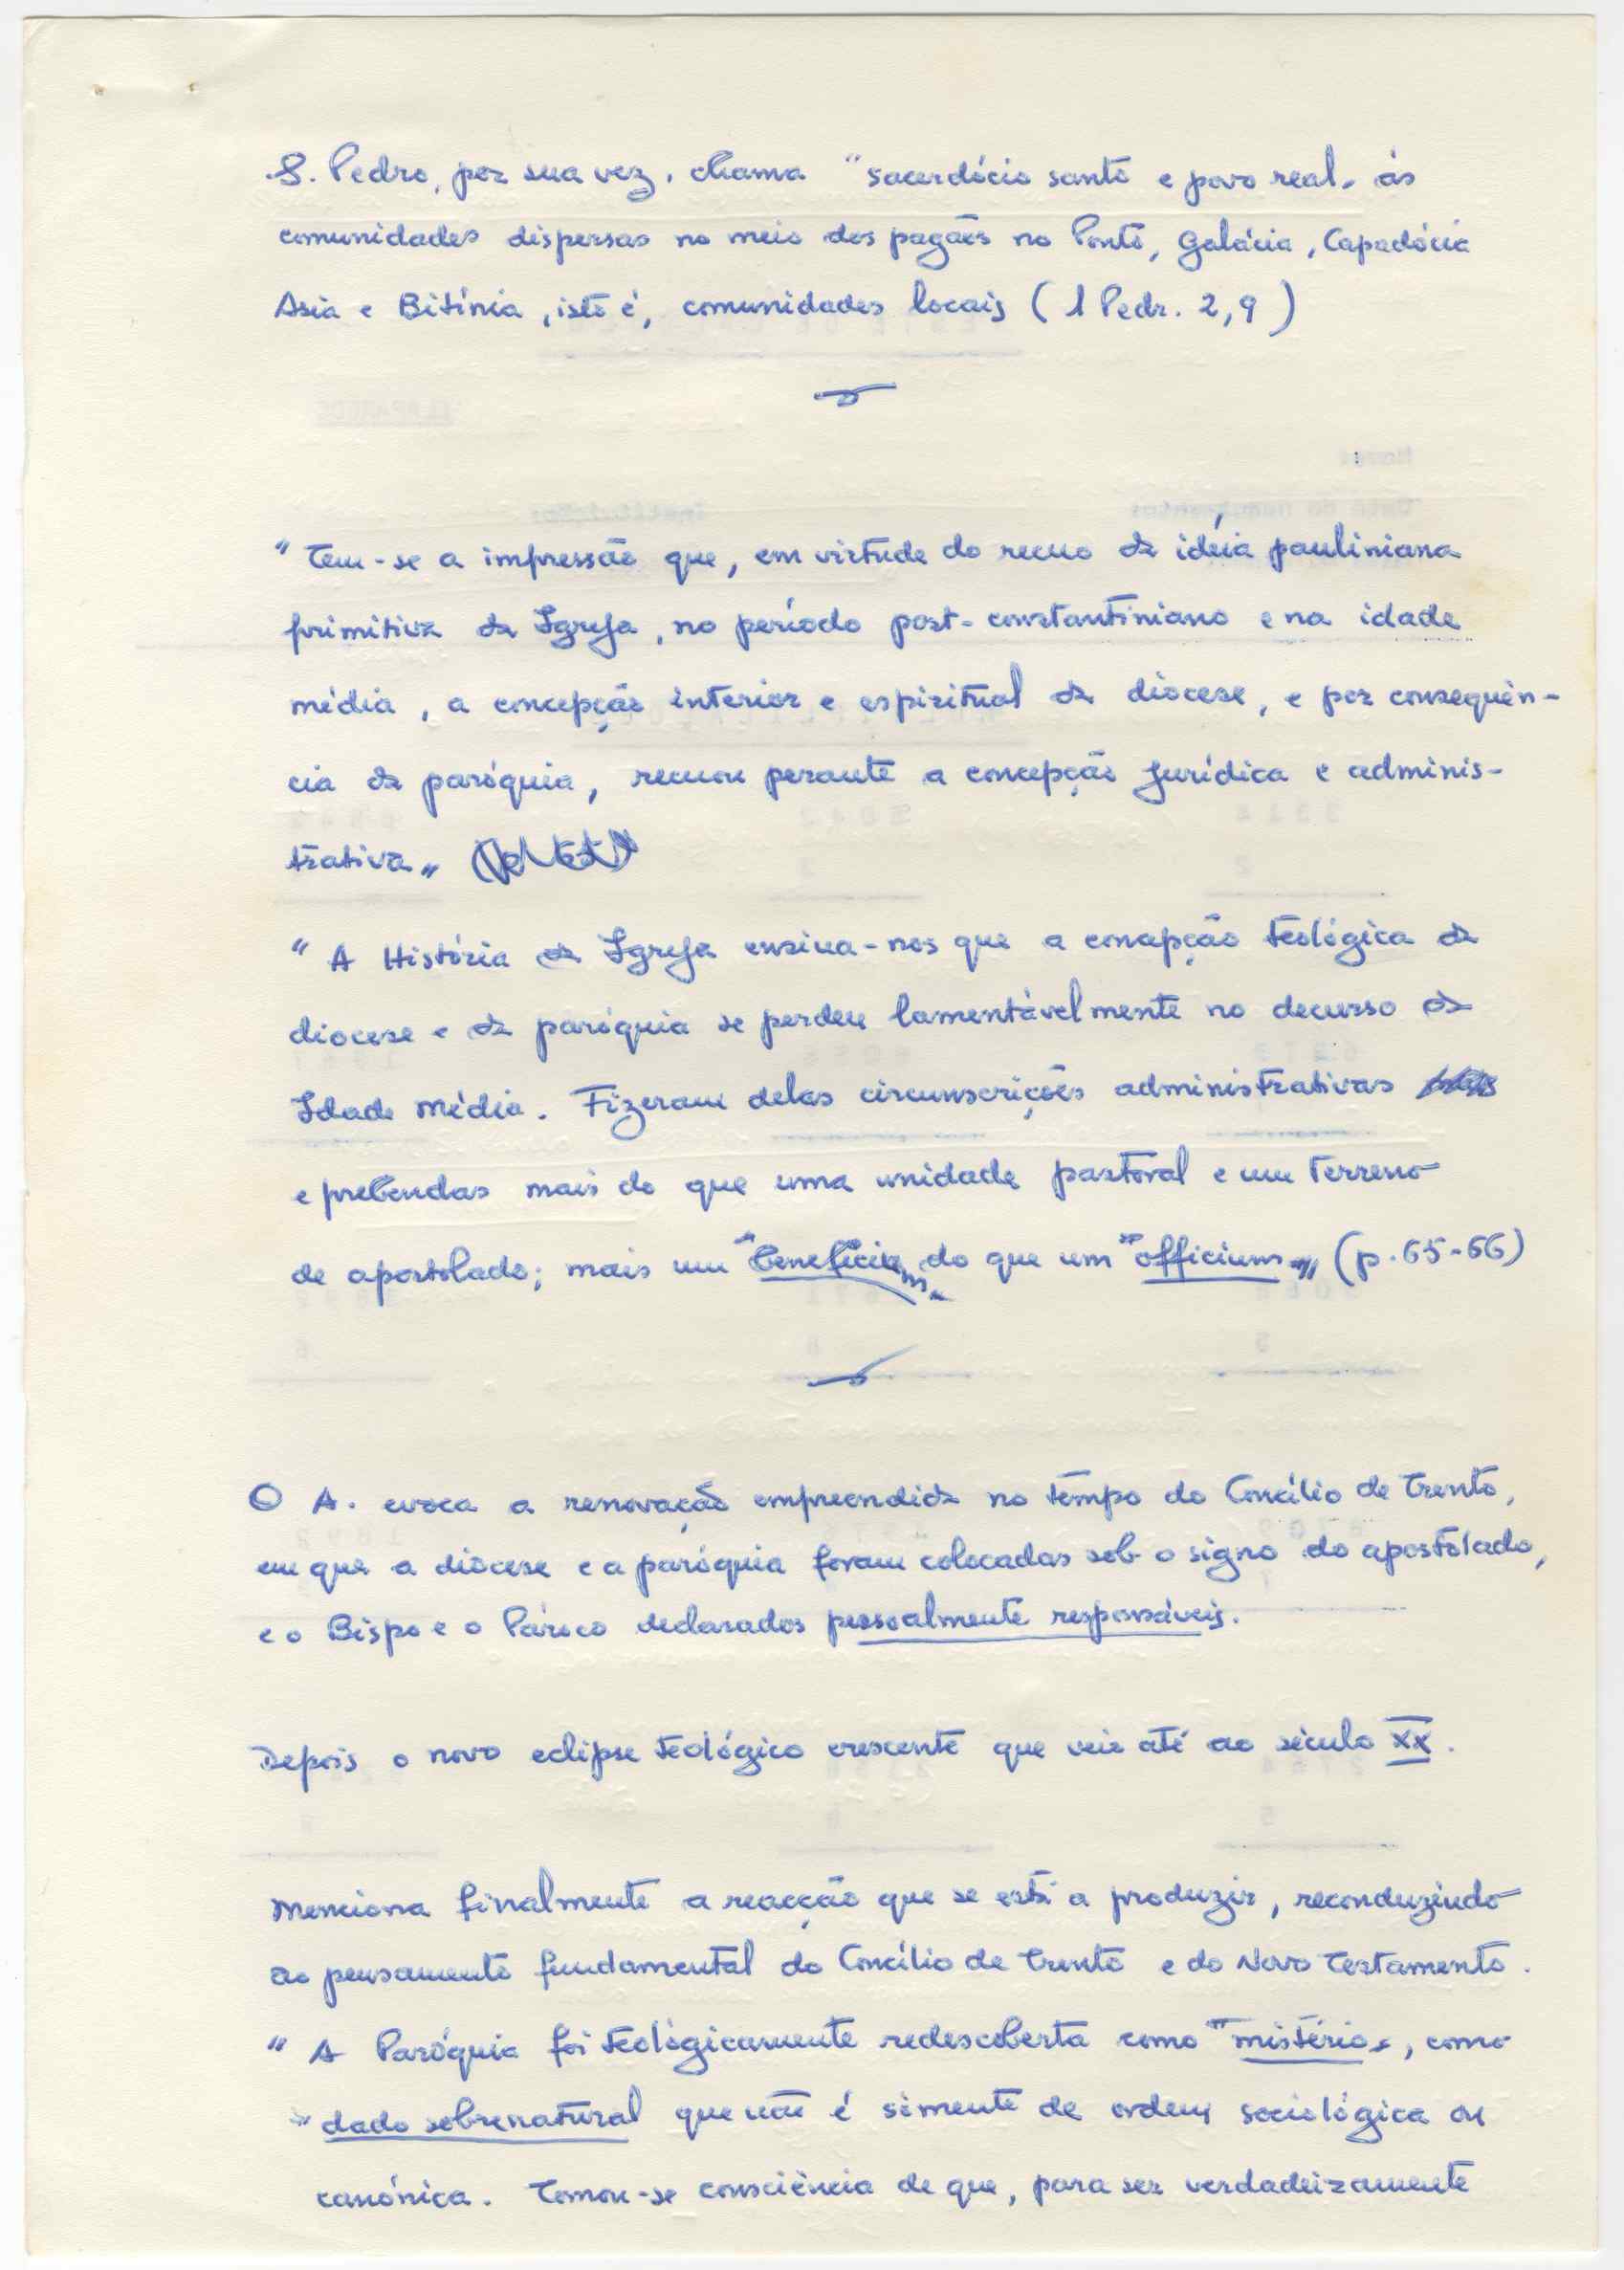 S. Pedro, por sua vez, chama "sacerdócio santo e povo real" às
comunidades dispersas no meio dos pagãos no Ponto, Galácia, Capadócia
Asia e Bitínia, isto é, comunidades locais (1 Pedr. 2,9)
"Tem-se a impressão que, em virtude do recuo da idéia pauliniana
primitiva da Igreja, no período post-constantiniano e na idade
média, a concepção interior e espiritual da diocese, e por consequên-
cia da paróquia, recuou perante a concepção jurídica e adminis-
trativa"
"A História da Igreja ensina-nos que a concepção teológica da
diocese e da paróquia se perdeu lamentàvelmente no decurso da
Idade Média. Fizeram delas circunscrições administrativas
e prebendas mais do que uma unidade pastoral e um terreno
de apostolado; mais um "beneficium" do que um "officium"" (p. 65-66)
O A. evoca a renovação empreendida no tempo do Concílio de Trento,
em que a diocese e a paróquia foram colocadas sob o signo do apostolado,
e o Bispo e o Pároco declarados pessoalmente responsáveis.
Depois o novo eclipse teológico crescente que veio até ao século XX.
Menciona finalmente a reacção que se está a produzir, reconduzindo
ao pensamento fundamental do Concílio de Trento e do Novo Testamento.
"A Paróquia foi teológicamente redescoberta como "mistério", como
"dado sobrenatural que não é sòmente de ordem sociológica ou
canónica. Tomou-se consciência de que, para ser verdadeiramente